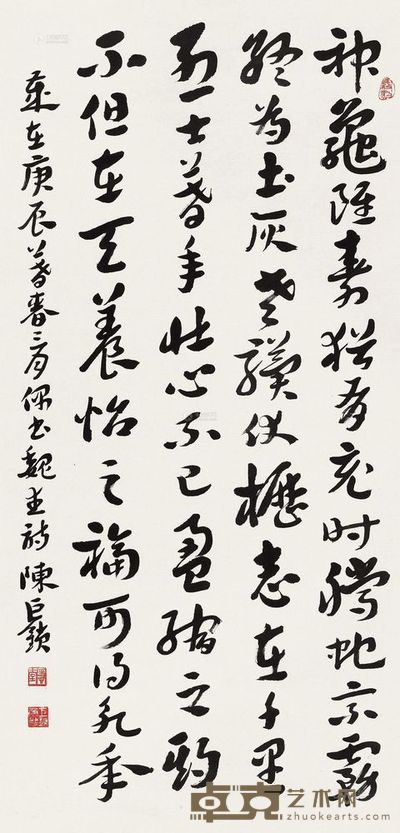 神龜雖壽猶有竟时騰蛇乘霧
終為土灰老驥伏櫪志在千里
烈士暮年壯心不已盈縮之期
不但在天養怡之福可得永年
歲在庚辰暮春三月偶書魏武詩陳巨鎖
卓克艺术网
zhuokearts.com